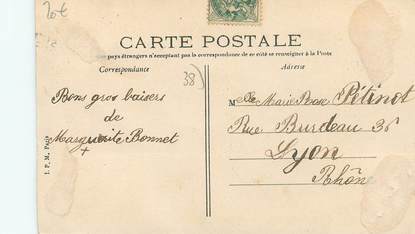 20€
CARTE POSTALE
pays étrangers n'acceptant pas la correspondance de ce côté se renseigner à la Poste
Correspondance
Adresse
38)
Bons gros baisers
de
Marguerite Bonnet
Melle Marie Rose Pétinot
Rue Burdeau 36
Lyon
Rhône
I. P. M. Paris